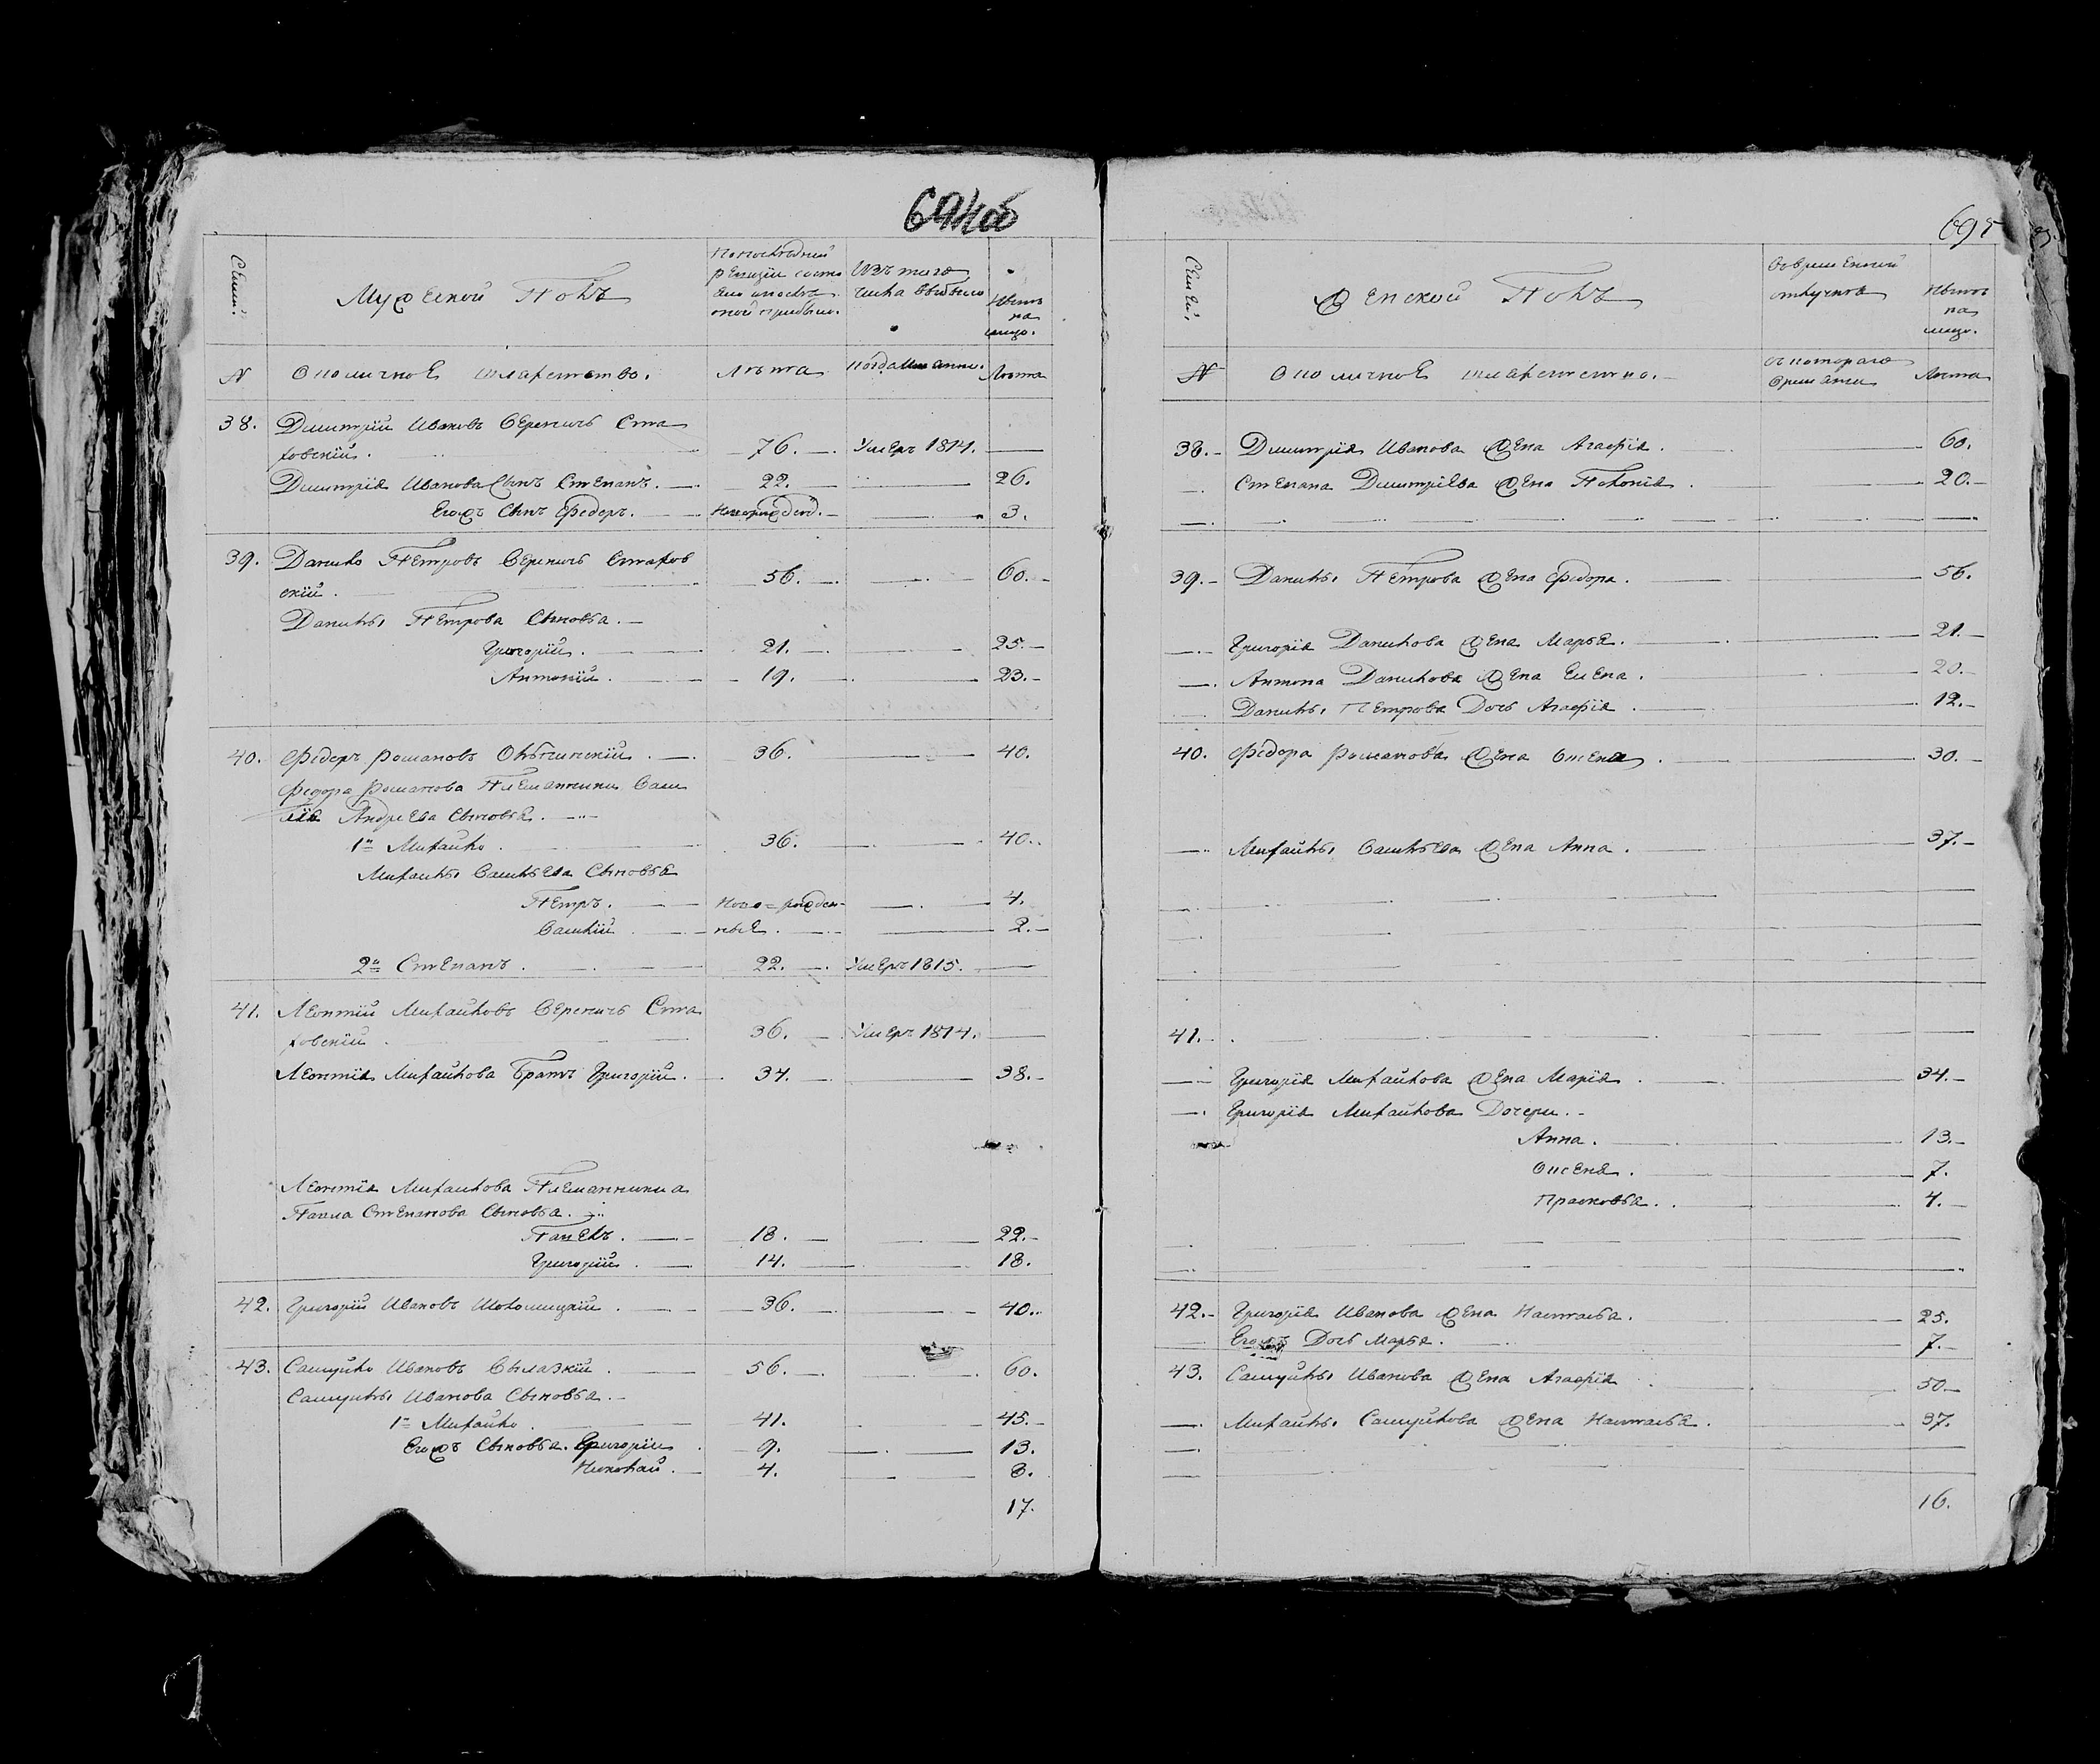 694об
Семьи.
Мужеской Полъ
По последней
ревизiи состо
яло и после
оной прибыло.
Изъ того
числа выбыло
Ныне
на
лицо.
№
Околичное шляхетство.
Лета
Когда именно.
Лета
38. Дмитрiй Ивановъ Вереничъ Ста
ховскiй. 76. Умеръ 1814.
Дмитрiя Иванова Сынъ Степанъ. 22. 26.
Егожъ Сынъ Федоръ. Новорожденъ. 3.
39. Данило Петровъ Вереничъ Стахов
скiй. 56. 60.
Данилы Петрова Сыновья.
Григорiй. 21. 25.
Антонiй. 19. 23.
40. Федоръ Романовъ Олѣшинскiй. 36. 40.
Федора Романова Племянники Васи
лiя Андреева Сыновья.
1й Михайло. 36. 40.
Михайлы Васильева Сыновья
Петръ. Ново=рожден- 4.
Василiй ные. 2.
2й Степанъ. 22. Умеръ 1815.
41. Леонтiй Михайловъ Вереничъ Ста
ховскiй. 36. Умеръ 1814.
Леонтiя Михайлова Братъ Григорiй. 34. 38.
Леонтiя Михайлова Племянника
Павла Степанова Сыновья.
Павелъ. 18. 22.
Григорiй. 14. 18.
42. Григорiй Ивановъ Шоломицкiй. 36. 40.
43. Самуйло Ивановъ Вылазкiй. 56. 60.
Самуйлы Иванова Сыновья.
1й Михайло. 41. 45.
Егожъ Сыновья. Григорiй. 9. 13.
Николай. 4. 8.
17.
695
Семьи.
Женской Полъ
Во временной
отлучке
Ныне
на
лицо.
№
Околичное шляхетство.
съ котораго
времени
Лета
38. Дмитрiя Иванова Жена Агафiя. 60.
Степана Дмитрiева Жена Полонiя. 20.
39. Данилы Петрова Жена Федора. 56.
Григорiя Данилова Жена Марья. 21.
Антона Данилова Жена Елена. 20.
Данилы Петрова Дочь Агафiя. 12.
40. Федора Романова Жена 30.
Михайлы Васильева Жена Анна. 37.
41.
Григорiя Михайлова Жена Марiя. 34.
Григорiя Михайлова Дочери.
Анна. 13.
Оксеня. 7.
Прасковья. 4.
42. Григорiя Иванова Жена Наталья. 25.
Егожъ Дочь Марья. 7.
43. Самуйлы Иванова Жена Агафiя 50.
Михайлы Самуйлова Жена Наталья. 37.
16.